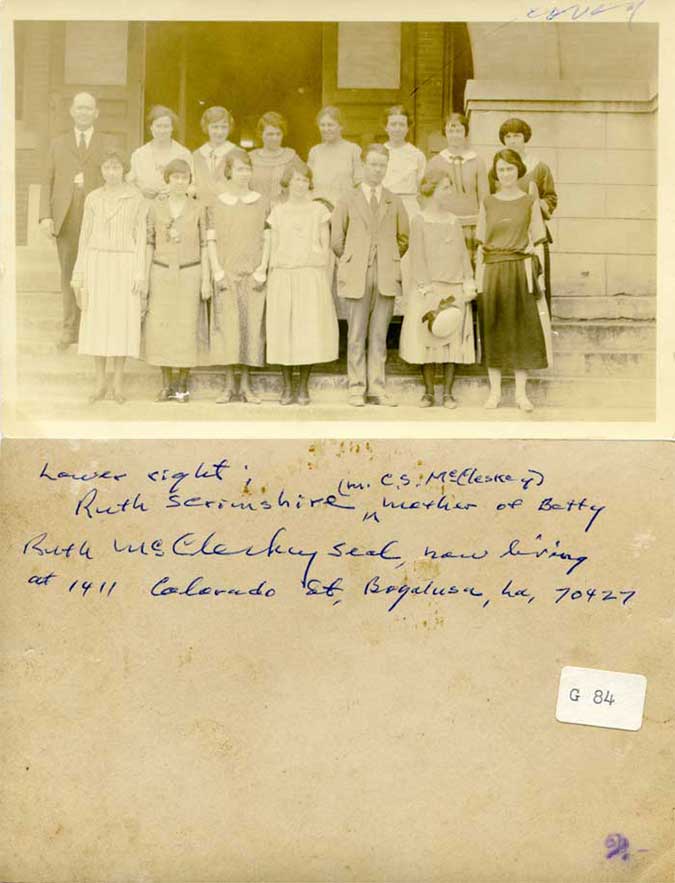 Lower right;
(m. C.S. McCleskey)
Ruth Scrimshire ^ mother of Betty
Ruth McCleskey Seal, now living
at 1411 Colorado St, Bogalusa, La, 70427
G 84